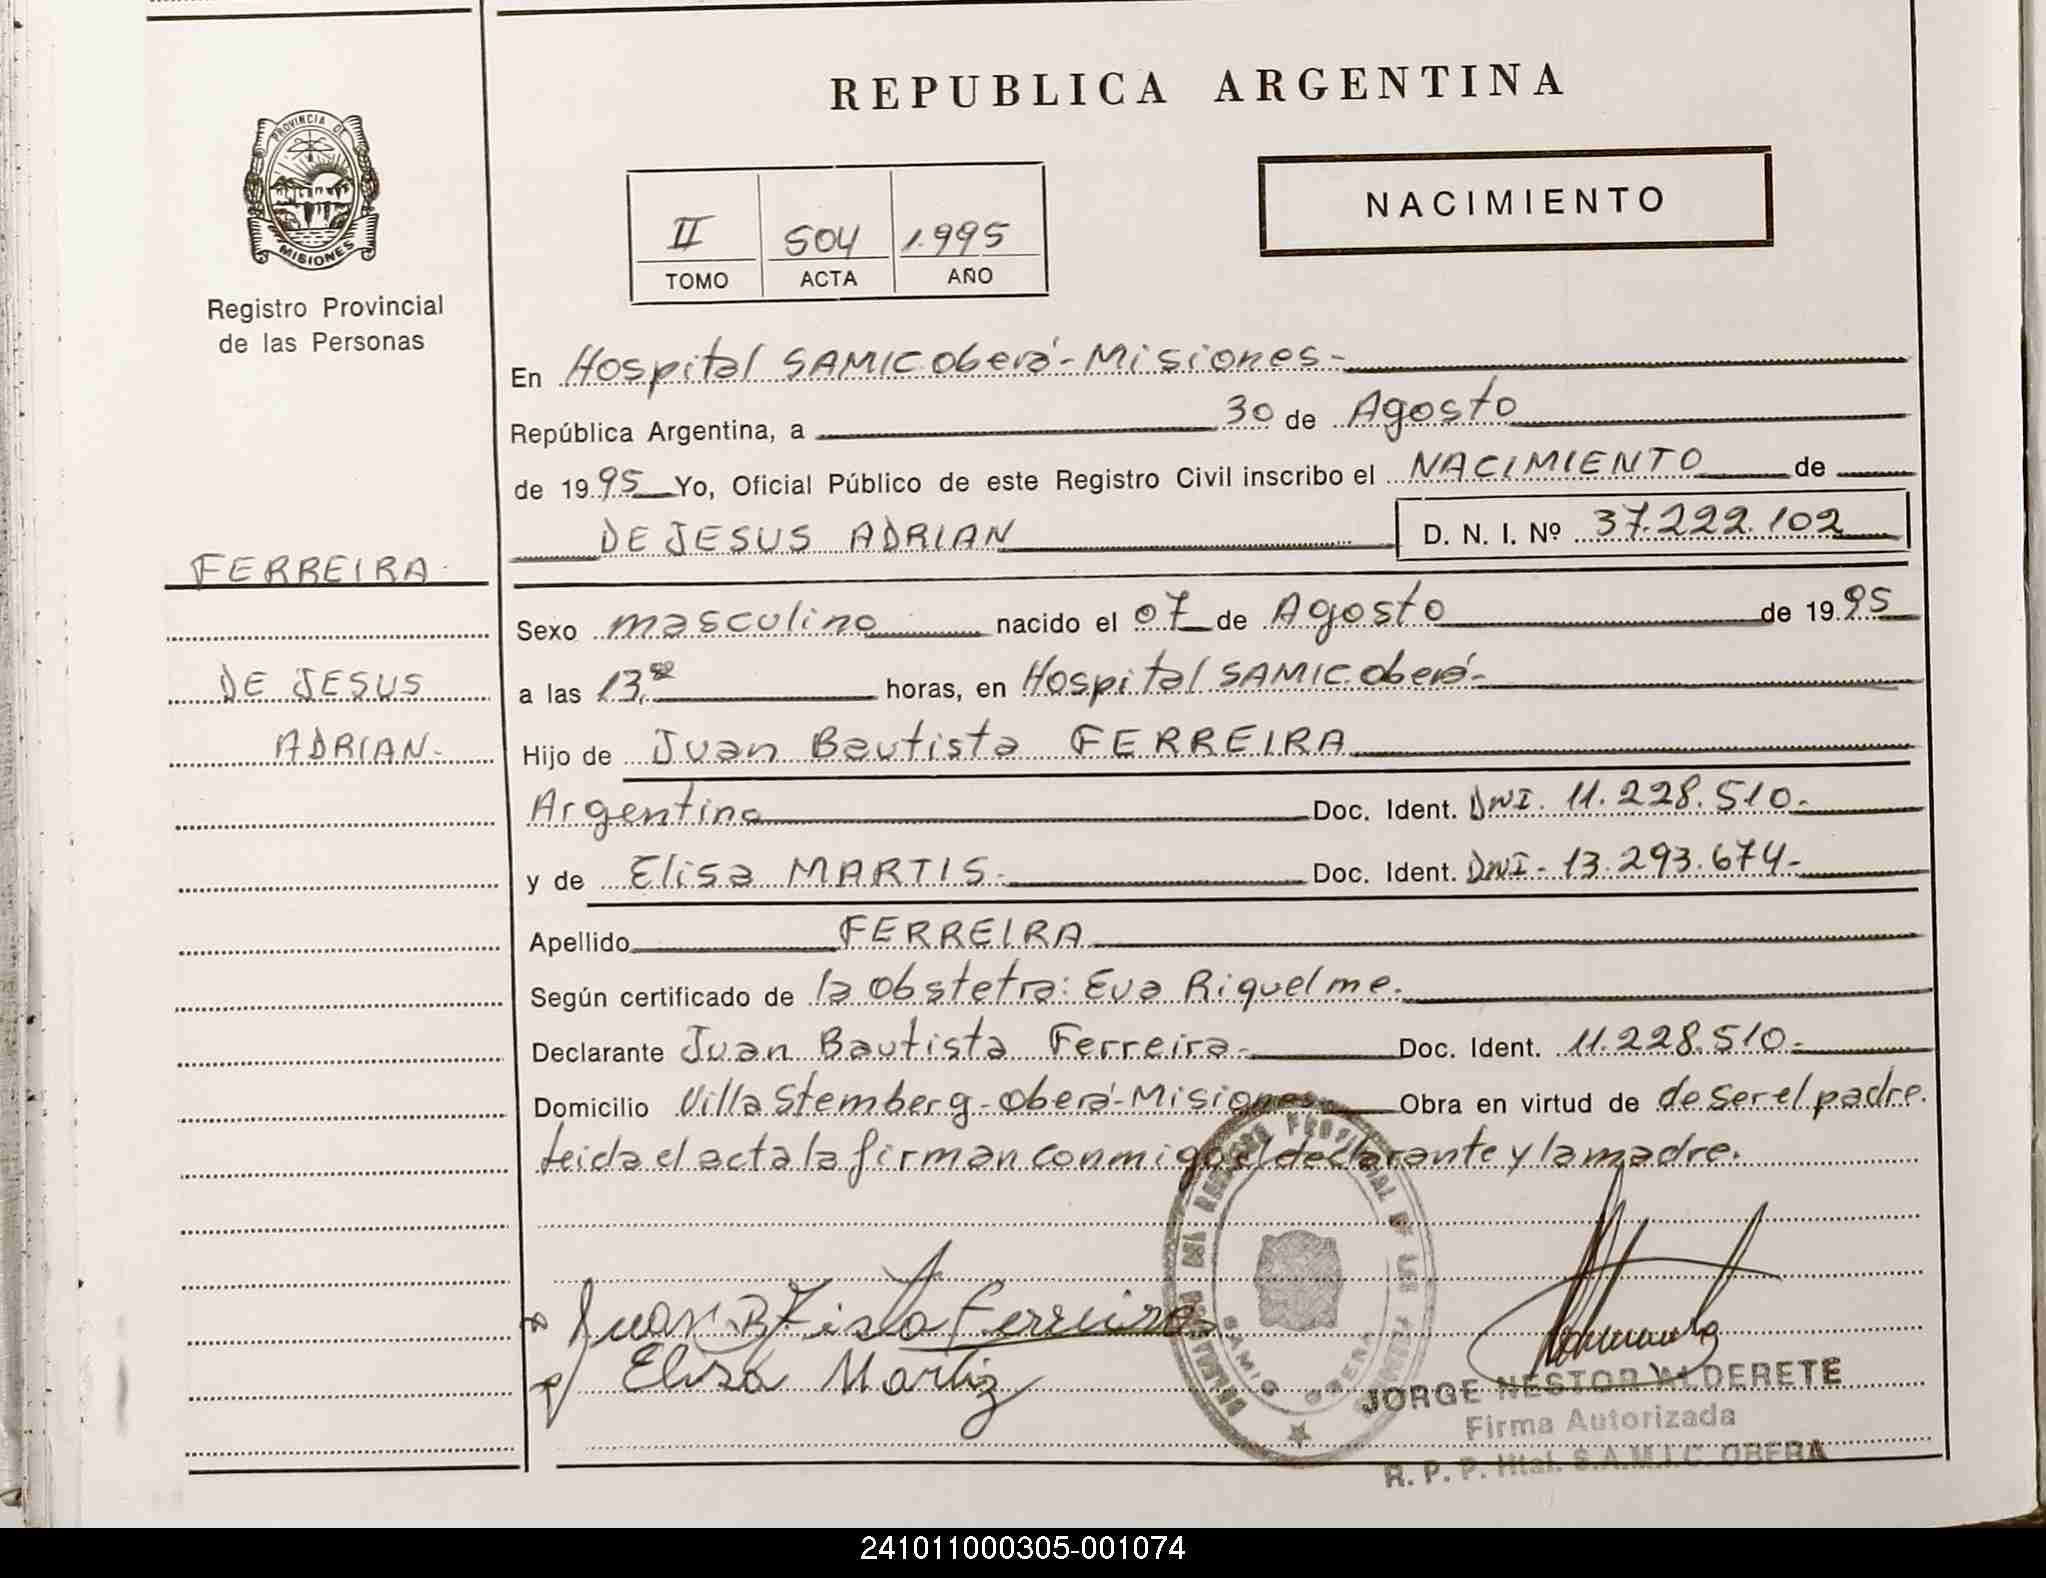 REPUBLICA ARGENTINA
PROVINCIA DE
MISIONES
Registro Provincial
de las Personas
NACIMIENTO
II 504 1.995
TOMO ACTA AÑO
En Hospital SAMIC Oberá - Misiones -
República Argentina, a 30 de Agosto
de 1995 Yo, Oficial Público de este Registro Civil inscribo el NACIMIENTO de
DE JESUS ADRIAN D. N. I. Nº 37.222.102
FERREIRA
DE JESUS
ADRIAN -
Sexo masculino nacido el 07 de Agosto de 1995
a las 13, horas, en Hospital SAMIC. Oberá -
Hijo de Juan Bautista FERREIRA
Argentino Doc. Ident. DNI. 11.228.510.-
y de Elisa MARTIS. Doc. Ident. DNI - 13.293.674 -
Apellido FERREIRA
Según certificado de la obstetra: Eva Riquelme.
Declarante Juan Bautista Ferreira - Doc. Ident. 11.228.510 -
Domicilio Villa Stemberg - Oberá - Misiones Obra en virtud de de ser el padre.
Leida el acta la firman conmigo el declarante y la madre.
Juan Btista Ferreira
Elisa Martiz
JORGE NESTOR ALDERETE
Firma Autorizada
R. P. P. Htal. S.A.M.I.C. OBERA
241011000305-001074